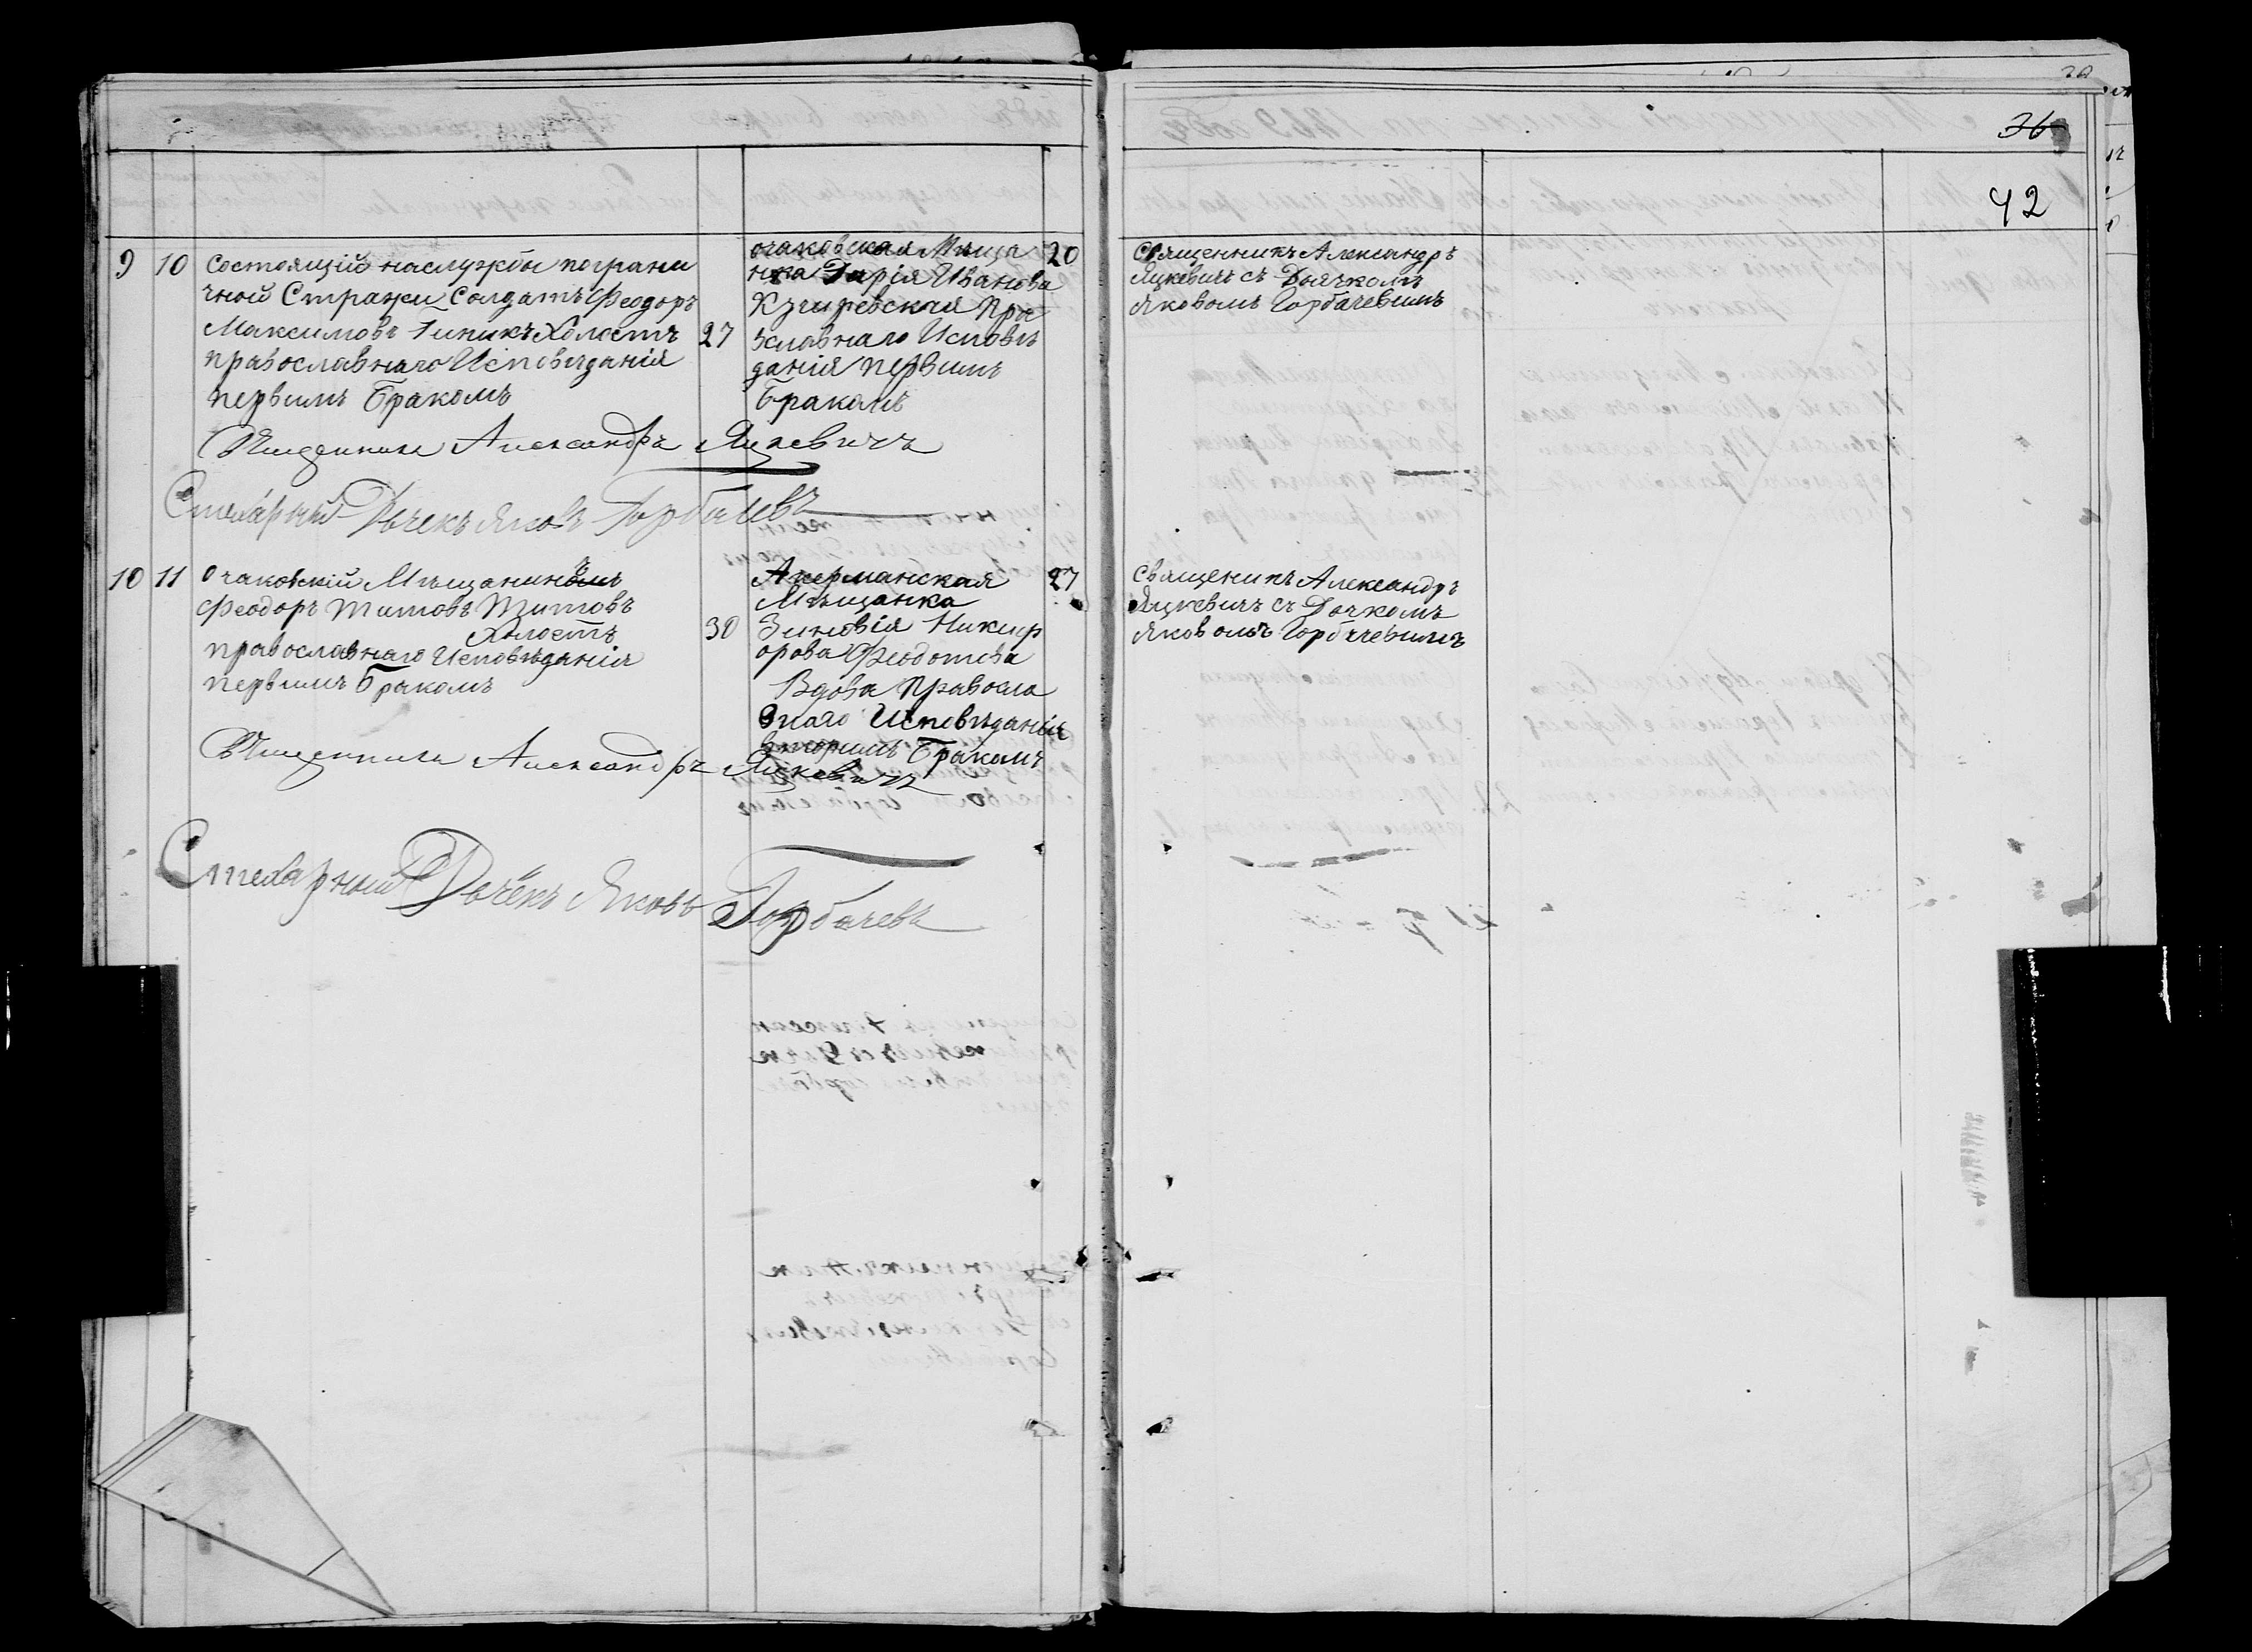 36
42
9 10 состоящій наслужбы пограни
чной Стражи Солдатъ Феодоръ
Максимовъ Холостъ 27
православнаго Исповѣданія
первымъ бракомъ
очаковская Мѣща 20
нка Дарія Иванова
Пра
вславнаго Исповѣ
данія первымъ
бракомъ
Священникъ Александръ
Яцкевичъ съ Дьячкомъ
Яковомъ Горбачевымъ
Священникъ Александръ Яцкевичъ
Дьячекъ Яковъ Горбачевъ
10 11 очаковскій Мѣщанинъ
Феодоръ Титовъ Титовъ
Холостъ 30
православнаго Исповѣданія
первымъ бракомъ
Акерманская 27
Мѣщанка
Зиновія Никиф
орова Федотова
Вдова Правосла
внаго Исповѣданія
вторымъ бракомъ
Священикъ Александръ
Яцкевичъ съ Дячкомъ
Яковомъ Горбачевымъ
Священникъ Александръ Яцкевичъ
Дьячекъ Яковъ Горбачевъ